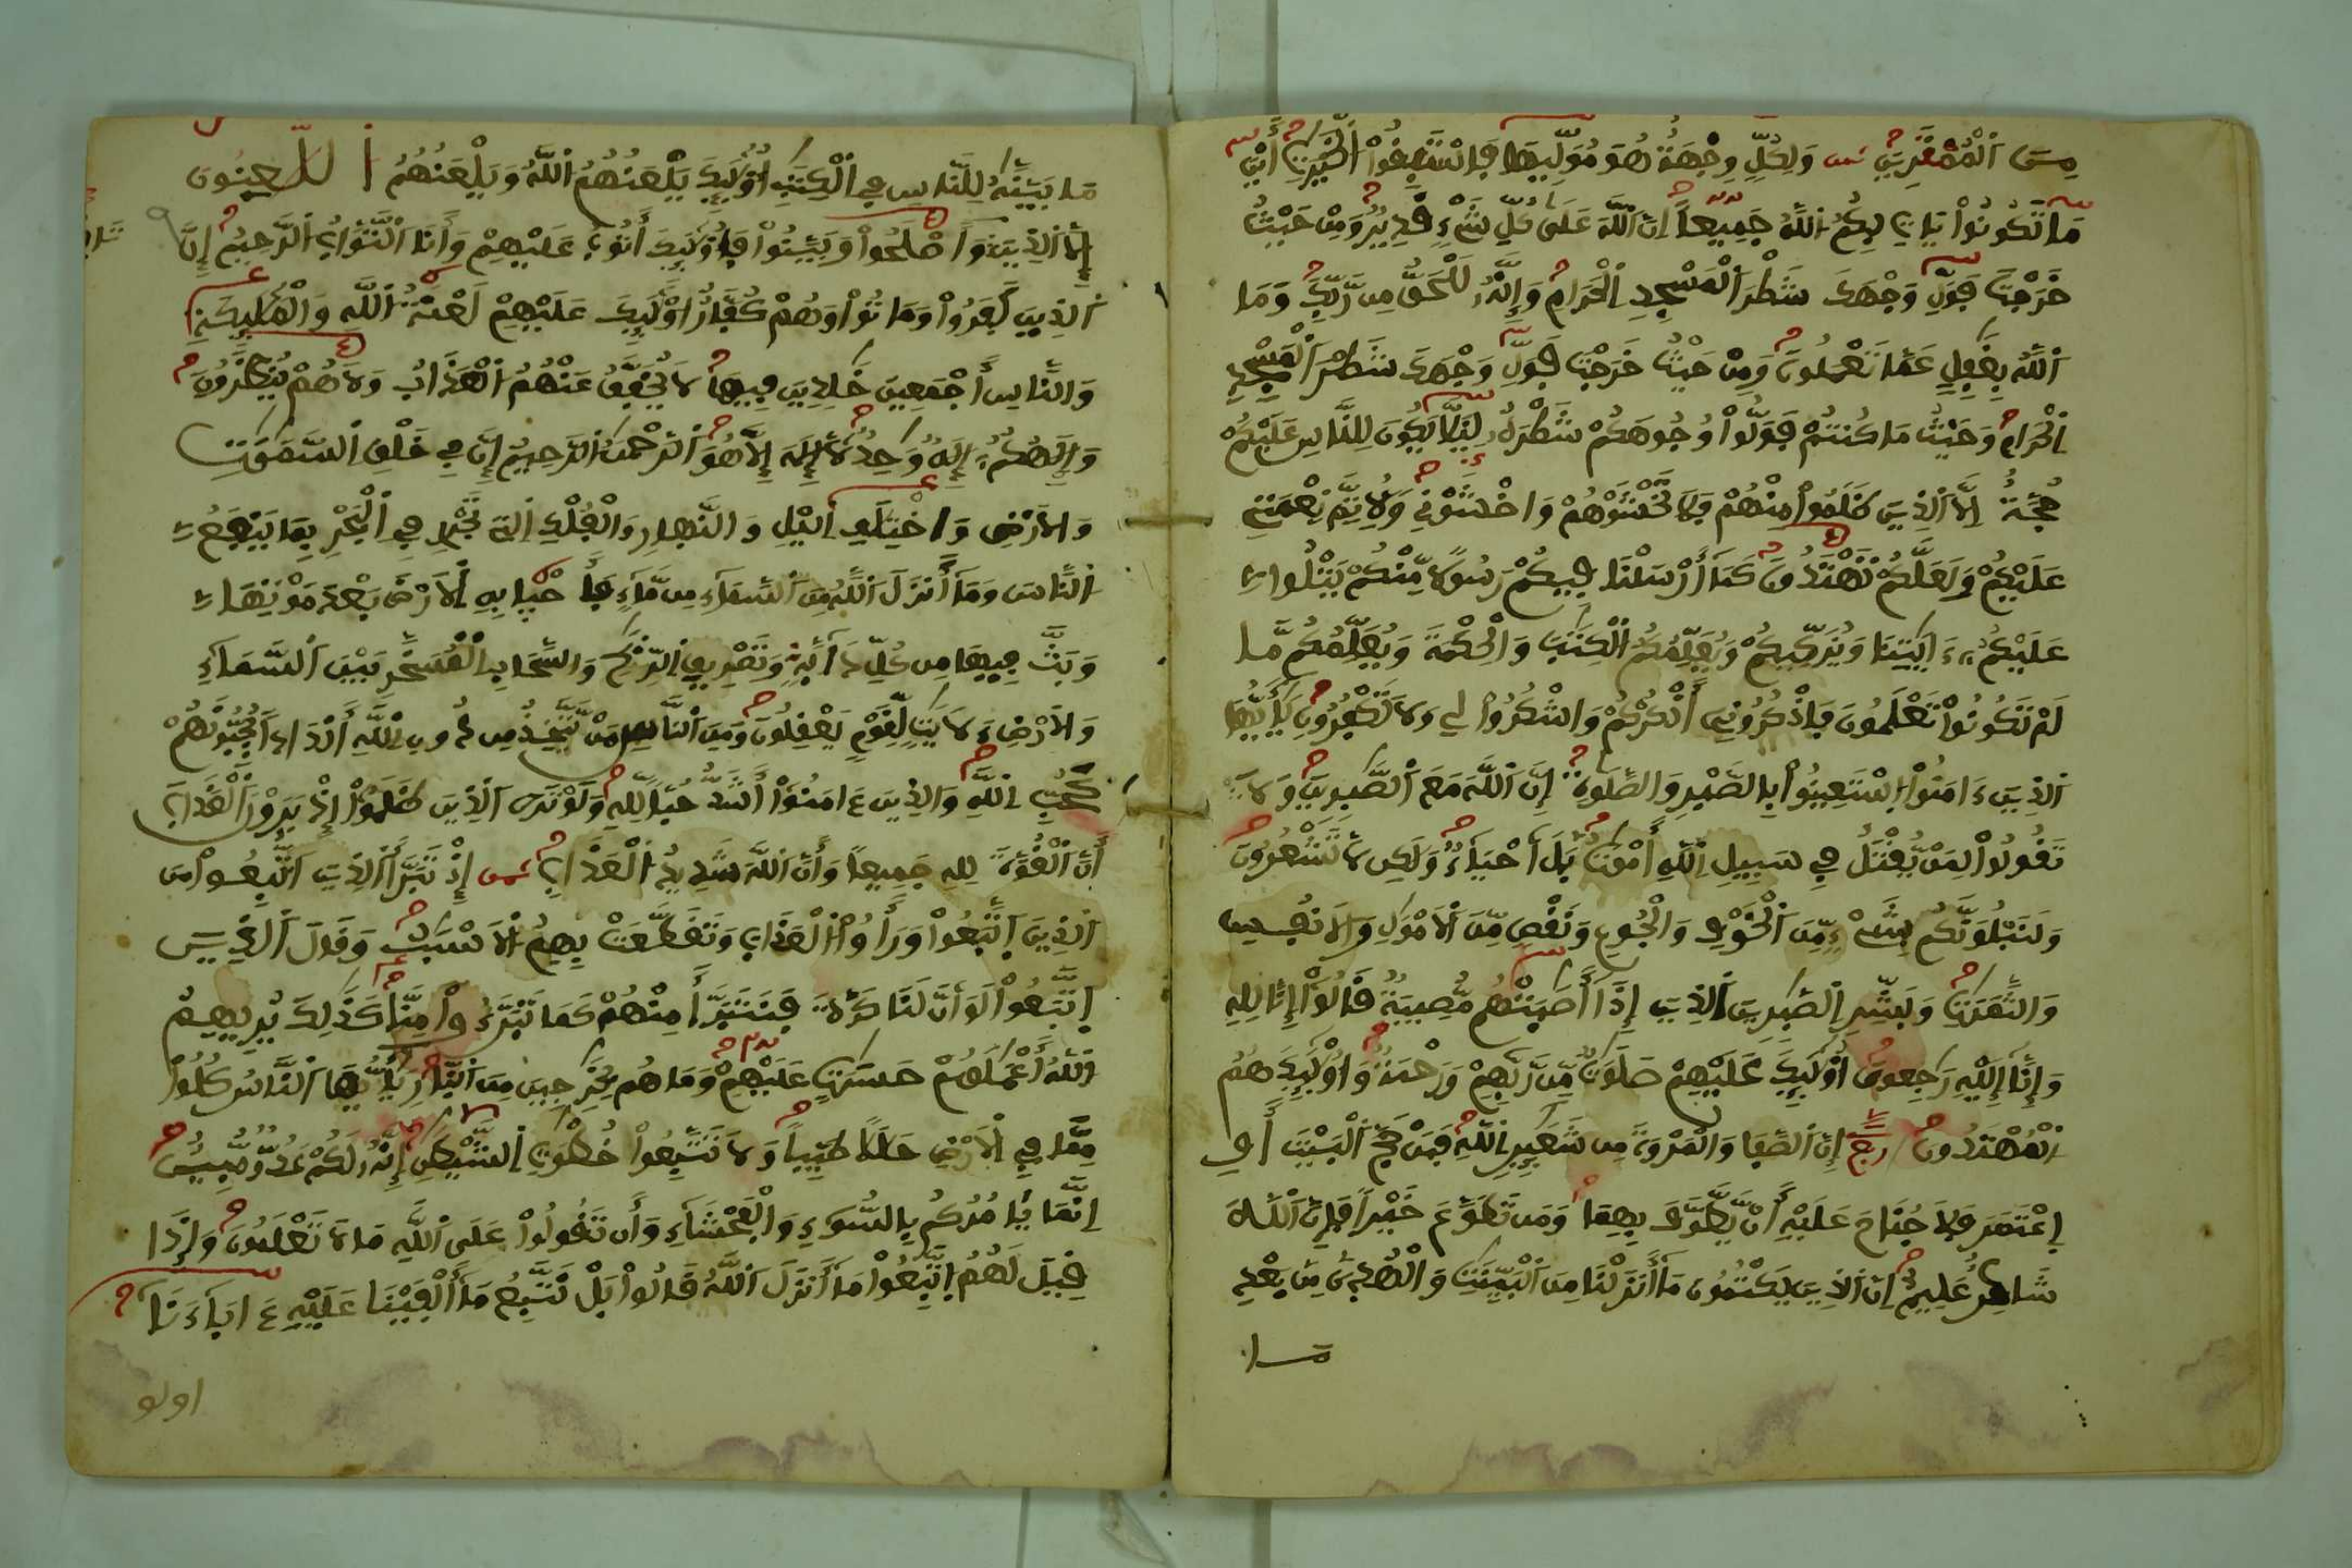 مِنَ اَلْمُمْتَرِينَ وَلِكُلٍّ وِجْهَةٌ هُوَ مُوَلِّيهَا فَاسْتَبِقُواْ اُلْخَيْرَٰتِ أَيْنَ
مَا تَكُونُواْ يَاتِ بِكُمُ اُللَّهُ جَمِيعاً اِنَّ اَللَّهَ عَلَىٰ كُلِّ شَےْءٖ قَدِيرٌ وَمِنْ حَيْثُ
خَرَجْتَ فَوَلِّ وَجْهَكَ شَطْرَ اَلْمَسْجِدِ اِلْحَرَامِ وَإِنَّهُۥ لَلْحَقُّ مِن رَّبِّكَ وَمَا
اَللَّهُ بِغَٰفِلٍ عَمَّا تَعْمَلُونَ وَمِنْ حَيْثُ خَرَجْتَ فَوَلِّ وَجْهَكَ شَطْرَ اَلْمَسْجِدِ
اِلْحَرَامِ وَحَيْثُ مَا كُنتُمْ فَوَلُّواْ وُجُوهَكُمْ شَطْرَهُۥ لِيَلَّا يَكُونَ لِلنَّاسِ عَلَيْكُمْ
حُجَّةٌ اِلَّا اَلذِينَ ظَلَمُواْ مِنْهُمْ فَلَا تَخْشَوْهُمْ وَاخْشَوْنِے وَلِأُتِمَّ نِعْمَتِے
عَلَيْكُمْ وَلَعَلَّكُمْ تَهْتَدُونَ كَمَا أَرْسَلْنَا فِيكُمْ رَسُولًا مِّنكُمْ يَتْلُواْ
عَلَيْكُمُۥٓ ءَايَٰتِنَا وَيُزَكِّيكُمْ وَيُعَلِّمُكُمُ اُلْكِتَٰبَ وَالْحِكْمَةَ وَيُعَلِّمُكُم مَّا
لَمْ تَكُونُواْ تَعْلَمُونَ فَاذْكُرُونِے أَذْكُرْكُمْ وَاشْكُرُواْ لِے وَلَا تَكْفُرُونِ يَٰأَيُّهَا
اَلذِينَ ءَامَنُواْ اُسْتَعِينُواْ بِالصَّبْرِ وَالصَّلَوٰةِ إِنَّ اَللَّهَ مَعَ اَلصَّٰبِرِينَ وَلَا
تَقُولُواْ لِمَنْ يُّقْتَلُ فِے سَبِيلِ اِللَّهِ أَمْوَٰتٌ بَلَ اَحْيَآءٌ وَلَٰكِن لَّا تَشْعُرُونَ
وَلَنَبْلُوَنَّكُم بِشَےْءٖ مِّنَ اَلْخَوْفِ وَالْجُوعِ وَنَقْصٖ مِّنَ اَلَامْوَٰلِ وَالَانفُسِ
وَالثَّمَرَٰتِ وَبَشِّرِ اِلصَّٰبِرِينَ اَلذِينَ إِذَا أَصَٰبَتْهُم مُّصِيبَةٌ قَالُواْ إِنَّا لِلهِ
وَإِنَّا إِلَيْهِ رَٰجِعُونَ أُوْلَٰٓئِكَ عَلَيْهِمْ صَلَوَٰتٌ مِّن رَّبِّهِمْ وَرَحْمَةٌ وَأُوْلَٰٓئِكَ هُمُ
اُلْمُهْتَدُونَ إِنَّ اَلصَّفَا وَالْمَرْوَةَ مِن شَعَٰٓئِرِ اِللَّهِ فَمَنْ حَجَّ اَلْبَيْتَ أَوِ
اِعْتَمَرَ فَلَا جُنَاحَ عَلَيْهِ أَنْ يَّطَّوَّفَ بِهِمَا وَمَن تَطَوَّعَ خَيْراً فَإِنَّ اَللَّهَ
شَاكِرٌ عَلِيمٌ اِنَّ اَلذِينَ يَكْتُمُونَ مَا أَنزَلْنَا مِنَ اَلْبَيِّنَٰتِ وَالْهُدَىٰ مِنۢ بَعْدِ
مـا
مَا بَيَّنَّٰهُ لِلنَّاسِ فِے اِلْكِتَٰبِ أُوْلَٰٓئِكَ يَلْعَنُهُمُ اُللَّهُ وَيَلْعَنُهُمُ اُللَّٰعِنُونَ
إِلَّا اَلذِينَ تَابُواْ وَأَصْلَحُواْ وَبَيَّنُواْ فَأُوْلَٰٓئِكَ أَتُوبُ عَلَيْهِمْ وَأَنَا اَلتَّوَّابُ اُلرَّحِيمُ إِنَّ
اَلذِينَ كَفَرُواْ وَمَاتُواْ وَهُمْ كُفَّارٌ اُوْلَٰٓئِكَ عَلَيْهِمْ لَعْنَةُ اُللَّهِ وَالْمَلَٰٓئِكَةِ
وَالنَّاسِ أَجْمَعِينَ خَٰلِدِينَ فِيهَا لَا يُخَفَّفُ عَنْهُمُ اُلْعَذَابُ وَلَا هُمْ يُنظَرُونَ
وَإِلَٰهُكُمُۥٓ إِلَٰهٌ وَٰحِدٌ لَّا إِلَٰهَ إِلَّا هُوَ اَلرَّحْمَٰنُ اُلرَّحِيمُ إِنَّ فِے خَلْقِ اِلسَّمَٰوَٰتِ
وَالَارْضِ وَاخْتِلَٰفِ اِليْلِ وَالنَّهَارِ وَالْفُلْكِ اِلتِے تَجْرِے فِے اِلْبَحْرِ بِمَا يَنفَعُ
اُلنَّاسَ وَمَا أَنزَلَ اَللَّهُ مِنَ اَلسَّمَآءِ مِن مَّآءٖ فَأَحْيَا بِهِ اِلَارْضَ بَعْدَ مَوْتِهَا
وَبَثَّ فِيهَا مِن كُلِّ دَآبَّةٖ وَتَصْرِيفِ اِلرِّيَٰحِ وَالسَّحَابِ اِلْمُسَخَّرِ بَيْنَ اَلسَّمَآءِ
وَالَارْضِ ءَلَايَٰتٖ لِّقَوْمٖ يَعْقِلُونَ وَمِنَ اَلنَّاسِ مَنْ يَّتَّخِذُ مِن دُونِ اِللَّهِ أَندَاداً يُحِبُّونَهُمْ
كَحُبِّ اِللَّهِ وَالذِينَ ءَامَنُواْ أَشَدُّ حُبّاً لِّلهِ وَلَوْ تَرَى اَلذِينَ ظَلَمُواْ إِذْ يَرَوْنَ اَلْعَذَابَ
أَنَّ اَلْقُوَّةَ لِلهِ جَمِيعاً وَأَنَّ اَللَّهَ شَدِيدُ اُلْعَذَابِ إِذْ تَبَرَّأَ اَلذِينَ اَتُّبِعُواْ مِنَ
اَلذِينَ اَتَّبَعُواْ وَرَأَوُاْ اُلْعَذَابَ وَتَقَطَّعَتْ بِهِمُ اُلَاسْبَٰبُ وَقَالَ اَلذِينَ
اَتَّبَعُواْ لَوَ اَنَّ لَنَا كَرَّةً فَنَتَبَرَّأَ مِنْهُمْ كَمَا تَبَرَّءُواْ مِنَّا كَذَٰلِكَ يُرِيهِمُ
اُللَّهُ أَعْمَٰلَهُمْ حَسَرَٰتٍ عَلَيْهِمْ وَمَا هُم بِخَٰرِجِينَ مِنَ اَلنَّارِ يَٰأَيُّهَا اَلنَّاسُ كُلُواْ
مِمَّا فِے اِلَارْضِ حَلَٰلًا طَيِّباً وَلَا تَتَّبِعُواْ خُطُوَٰتِ اِلشَّيْطَٰنِ إِنَّهُۥ لَكُمْ عَدُوٌّ مُّبِينٌ
اِنَّمَا يَامُرُكُم بِالسُّوٓءِ وَالْفَحْشَآءِ وَأَن تَقُولُواْ عَلَى اَللَّهِ مَا لَا تَعْلَمُونَ وَإِذَا
قِيلَ لَهُمُ اُتَّبِعُواْ مَا أَنزَلَ اَللَّهُ قَالُواْ بَلْ نَتَّبِعُ مَا أَلْفَيْنَا عَلَيْهِ ءَابَآءَنَا
اولو